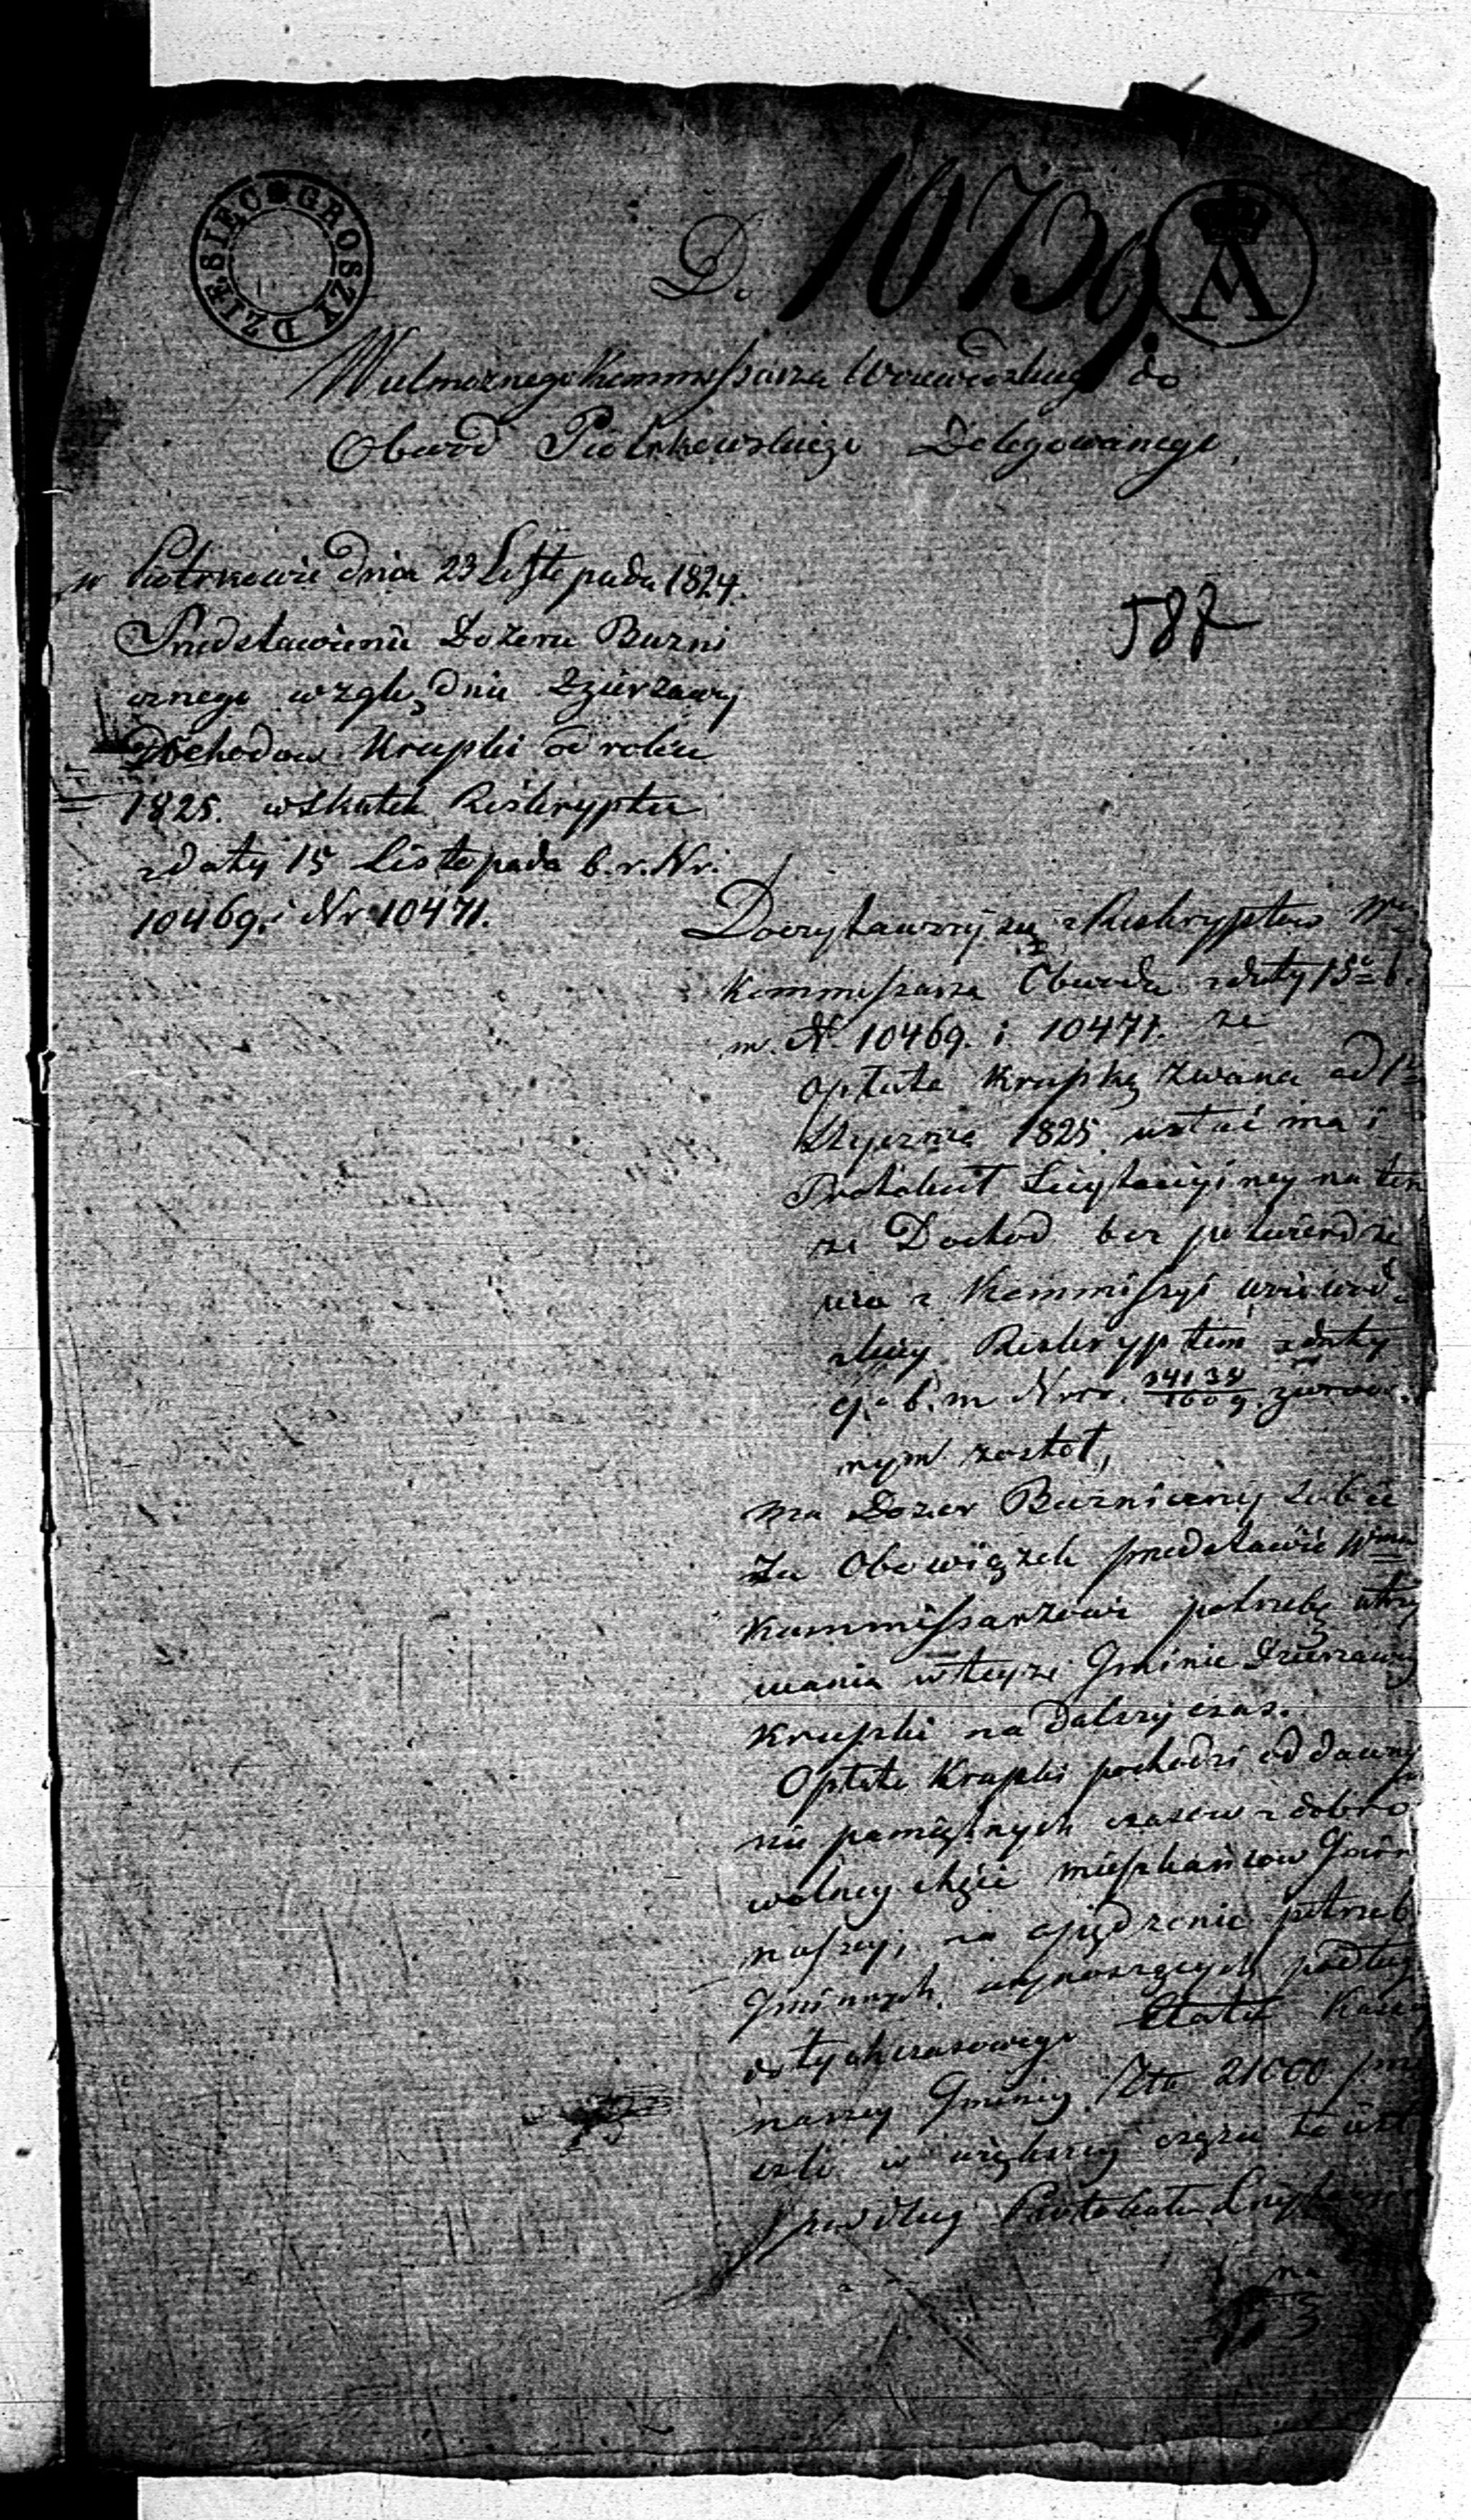 DZIESIĘC GROSZY
D. 10759.
A
Wielmożnego Kommissarza Woiewodzkiego do
Obwod Piotrkowskiego Delegowanego,
w Piotrkowie dnia 23 Listopada 1824.
Przedstawienie Dozoru Buzni
cznego względnie Dzierzawy
Dochodow Krupki od roku
1825. wskutek Reskryptu
zdaty 15 Listopada b. r. Nr.
10469. i Nr 10471.
588
Doczytawszy się z Reskryptow Wo
Kommissarza Obwodu zdaty 15o b.
m. N 10469. i 10471. ze
opłata Krupką zwana od 1o
Stycznia 1825. ustać ma i
Protokuł Licytacyiney na ten
ze Dochod bez potwierdze
nia z Kommissyi woiewod
zkiey Reskryptem zdaty
9o b. m Nro. 54138/1609. zwroco
nym został,
ma Dozor Buzniczny sobie
za Obowiązek przedstawić Wmu
Kommissarzowi potrzebę utrzy
mania w teyze Gminie Dzierzawy
Krupki na dalszy czas.
Opłata Krupki pochodzi od dawny
nie pamiętnych czasow z dobro
wolney chęci mieszkańcow Gmin
naszey, na opędzenie potrzeb
Gminnych wynoszących podług
dotychczasowego Etatu Kassy
naszey Gminy Złt 21000
w większey części
podług Protokołu
na